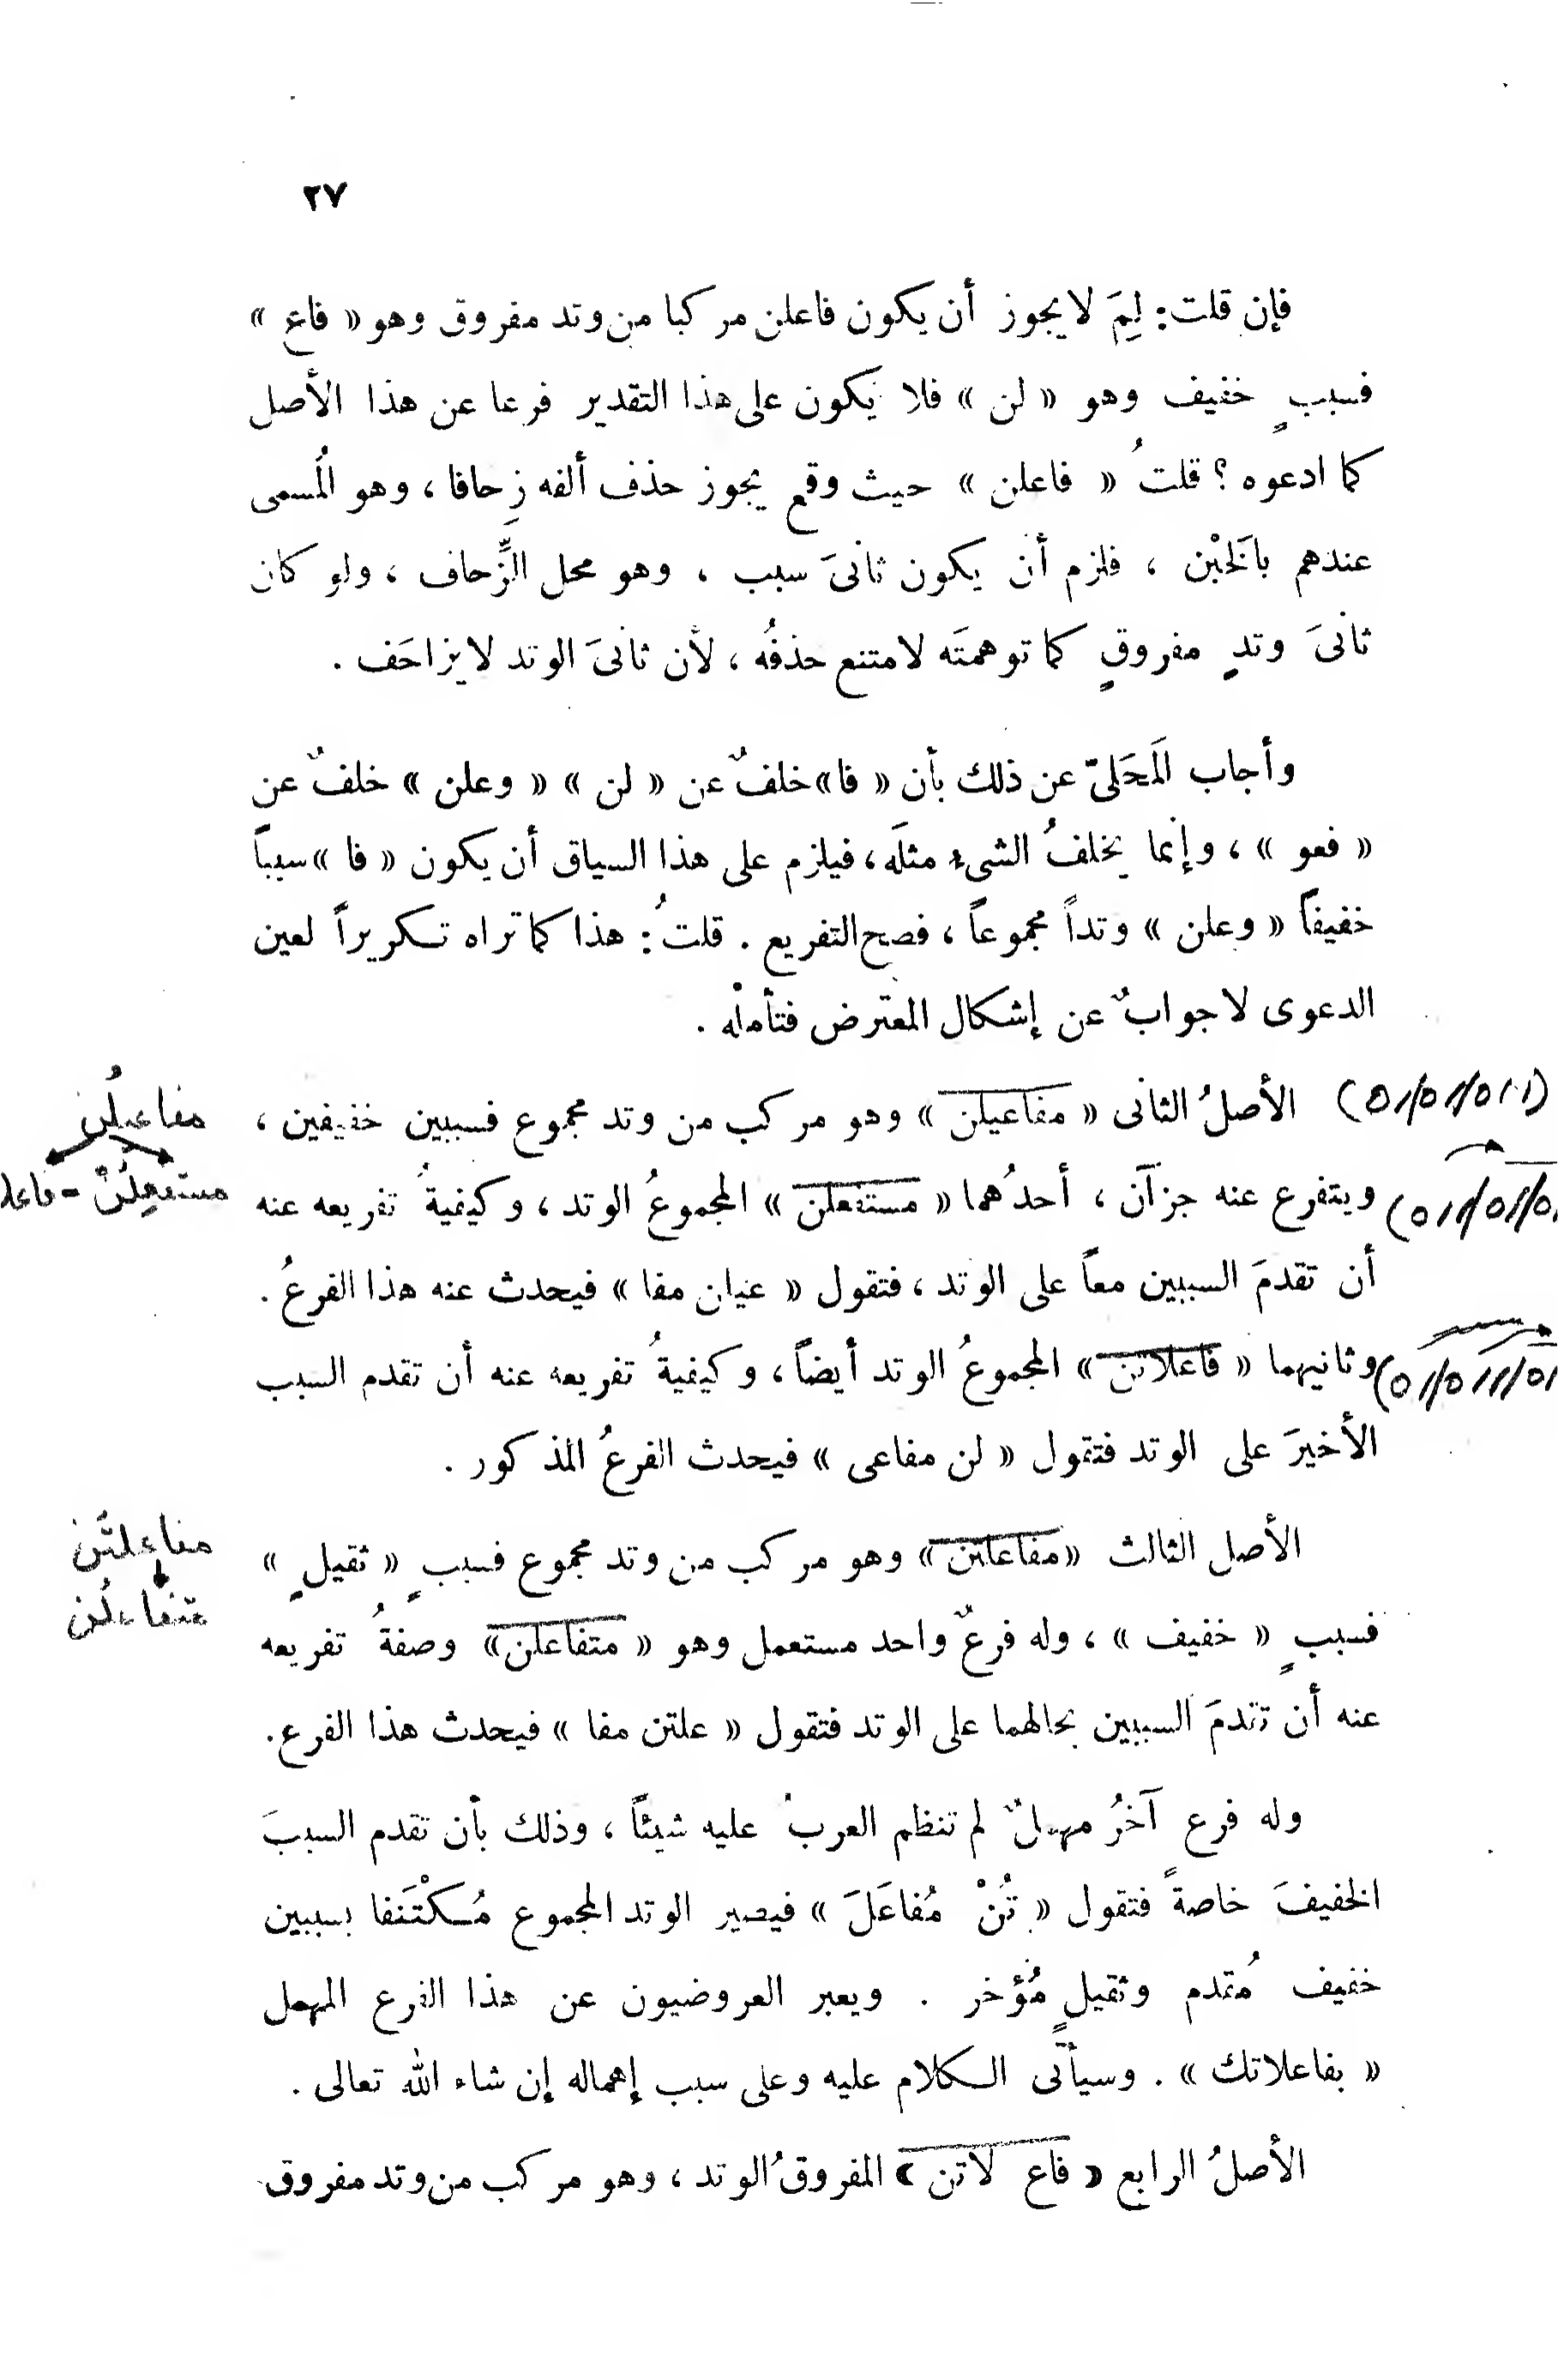 ٢٧
فإن قلت: لِمَ لا يجوز أن يكون فاعلن مركبا من وتد مفروق وهو « فاع »
فسببٍ خفيف وهو « لن » فلا يكون على هذا التقدير فرعا عن هذا الأصل
كما ادعوه ؟ قلتُ « فاعلن » حيث وقع يجوز حذف ألفه زِحافا ، وهو المُسمى
عندهم بالَخبْن ، فلزم أن يكون ثانىَ سبب ، وهو محل الزِّحاف ، ولو كان
ثانىَ وتدٍ مفروقٍ كما توهمتَه لامتنع حذفُه ، لأن ثانىَ الوتد لا يزاحَف .
وأجاب المَحَلىّ عن ذلك بأن « فا» خلفٌ عن « لن » « وعلن » خلفٌ عن
« فعو » ، وإنما يخلفُ الشىء مثلَه ، فيلزم على هذا السياق أن يكون « فا » سبباً
خفيفاً « وعلن » وتداً مجموعاً ، فصح التفريع . قلتُ : هذا كما تراه تكريراً لعين
الدعوى لا جوابٌ عن إشكال المعترض فتأملْه .
(٥/٥/٥//) الأصلُ الثانى « مفاعيلن » وهو مركب من وتد مجموع فسببين خفيفين ، مفاعيلُن
ويتفرع عنه جزآن ، أحدُهما « مستفعلن » المجموعُ الوتد ، وكيفيةُ تفريعه عنه مستفعِلُنْ - فاعلا
أن تقدمَ السببين معاً على الوتد ، فتقول « عيلن مفا » فيحدث عنه هذا الفرعُ .
وثانيهما « فاعلاتن » المجموعُ الوتد أيضاً ، وكيفيةُ تفريعه عنه أن تقدم السبب
الأخيرَ على الوتد فتقول « لن مفاعى » فيحدث الفرعُ المذكور .
الأصل الثالث «مفاعلتن » وهو مركب من وتد مجموع فسببٍ « ثقيلٍ » مفاعلتُن
فسببٍ « خفيف » ، وله فرعٌ واحد مستعمل وهو « متفاعلن» وصفةُ تفريعه متفاعلُن
عنه أن تقدمَ السببين بحالهما على الوتد فتقول « علتن مفا » فيحدث هذا الفرع.
وله فرع آخرُ مهملٌ لم تنظم العربُ عليه شيئاً ، وذلك بأن تقدم السببَ
الخفيفَ خاصةً فتقول « تُنْ مُفاعَلَ » فيصير الوتد المجموع مُكْتَنَفا بسببين
خفيف مُقدم وثقيلٍ مُؤخر . ويعبر العروضيون عن هذا الفرع المهمل
« بفاعلاتك » . وسيأتى الكلام عليه وعلى سبب إهماله إن شاء الله تعالى .
الأصلُ الرابع « فاع لاتن » المفروقُ الوتد ، وهو مركب من وتد مفروق